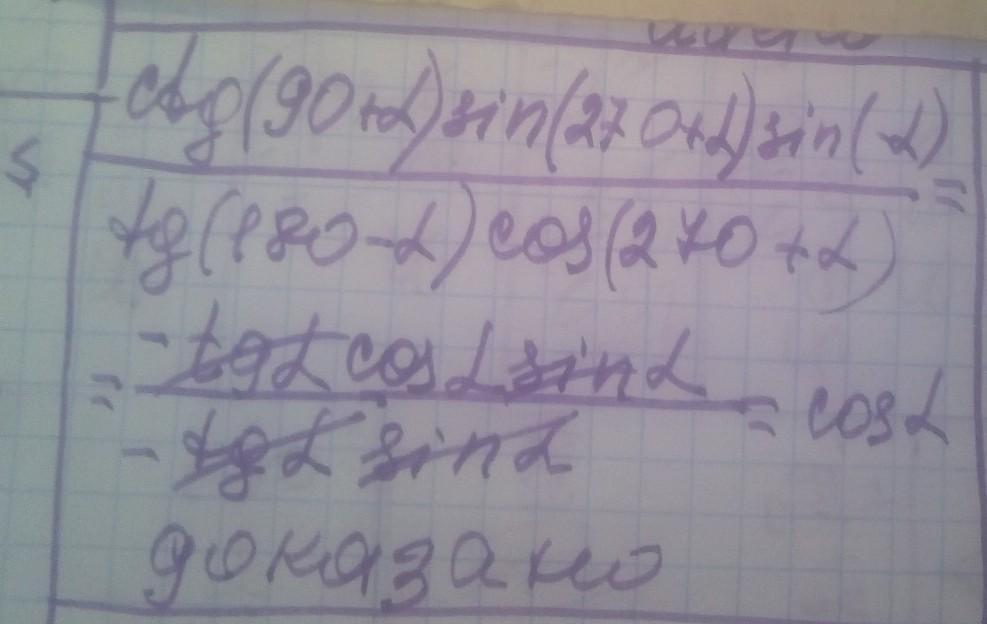 5
ctg(90+α)sin(270+α)sin(-α) =
tg(180-α)cos(270+α)
= -tgα cosα sinα = cosα
-tgα sinα
доказано